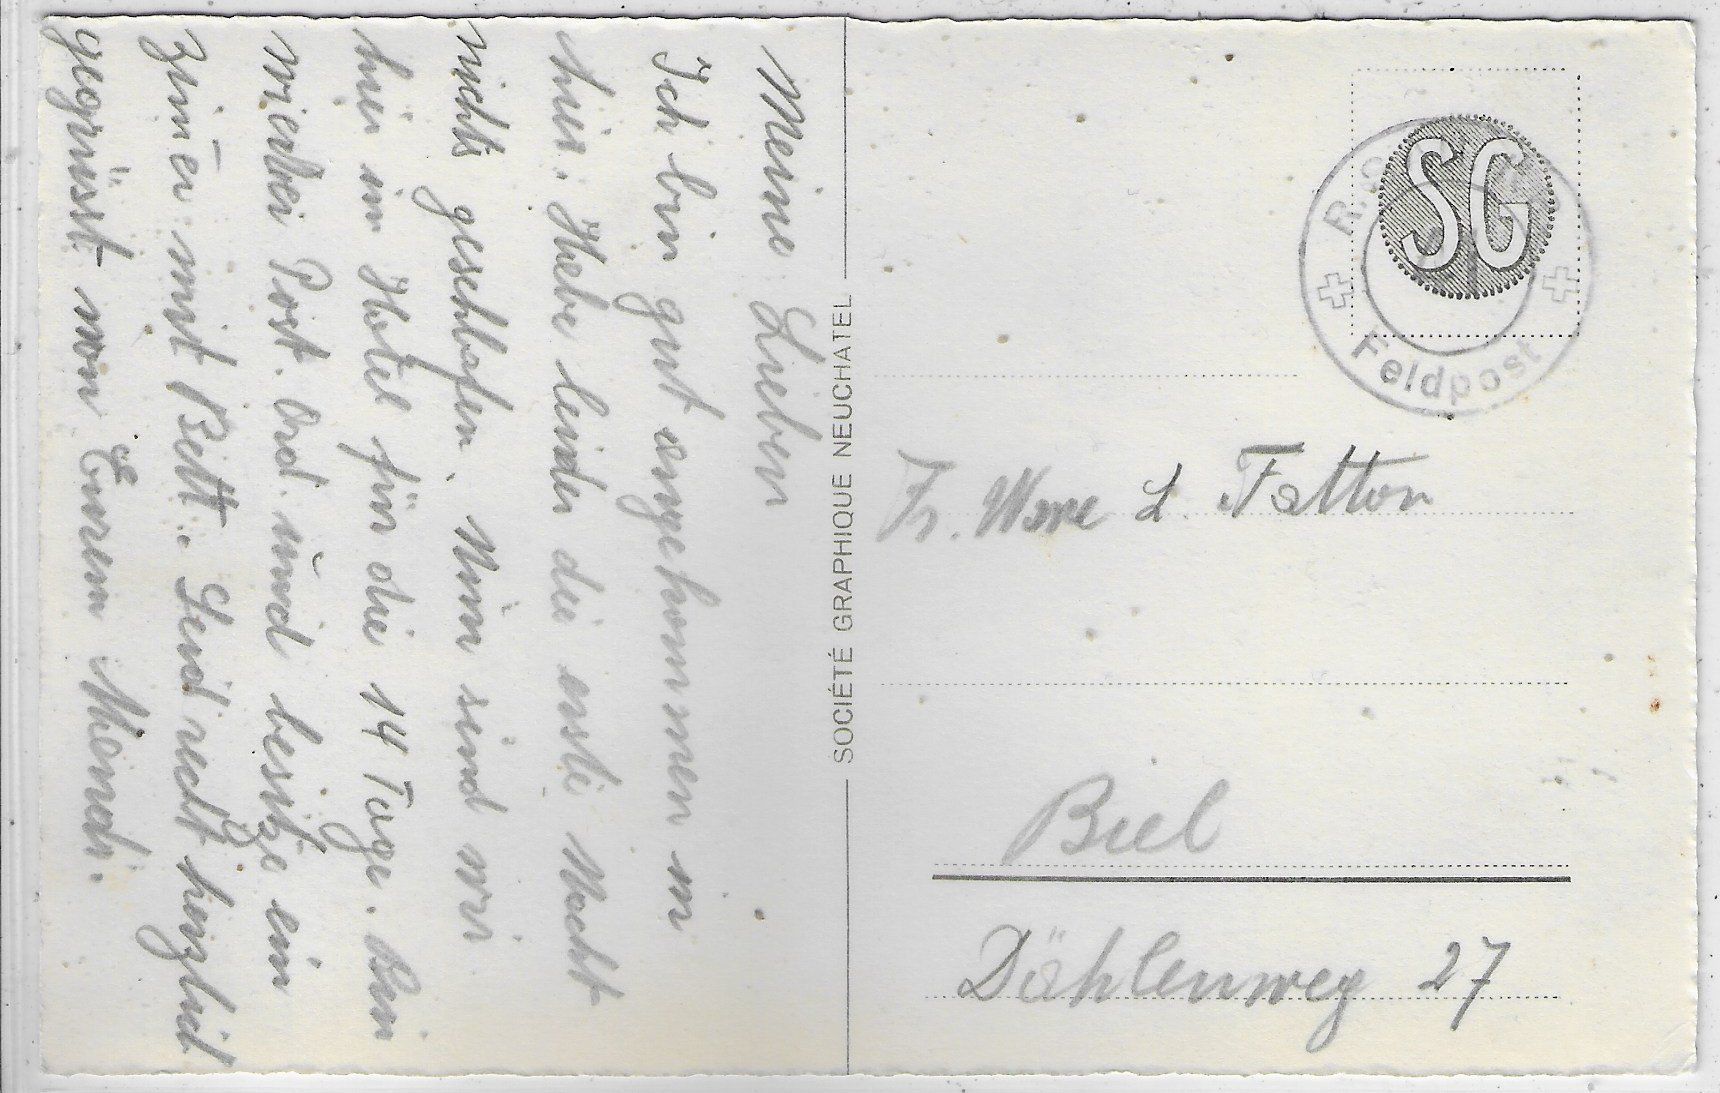 Meine Lieben
Ich bin gut angekommen in
hier. Habe leider die erste Nacht
nicht geschlafen. Nun sind wir
hier im Hotel für die 14 Tage. Bin
wieder Post. Ord. und besitze ein
Zim̄er mit Bett. Seid recht herzlich
gegrüsst von Eurem
SOCIÉTÉ GRAPHIQUE NEUCHATEL
SG
Feldpost
Fr. & Fatton
Biel
Dählenweg 27